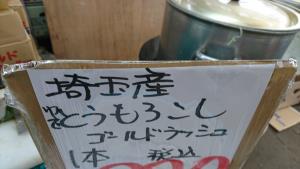 埼玉産
とうもろこし
ゴールドラッシュ
1本 税込